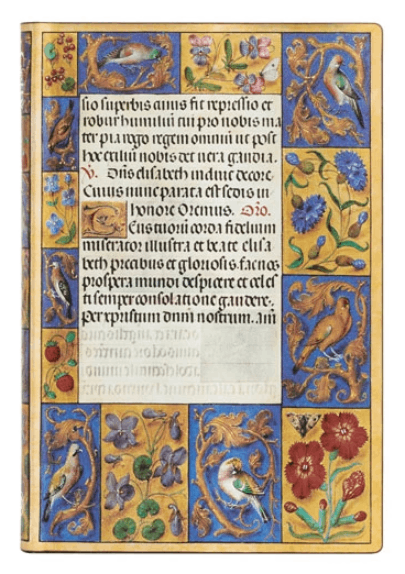 sio superbis cuius fit repressio et
robur humilium tu pro nobis ma
ter pia rogo regem omniu ut post
hoc exiliu nobis det vera gaudia.
V. Dns elisabeth induit decore
Cuius nunc parata est sedis in
honore Oremus. Oro.
DEus tuorum corda fidelium
miserator illustra et beate elisa
beth precibus et gloriosis fac nos
prospera mundi despicere et celes
ti semper consolatione gaudere.
per xpristum dnm nostrum. am